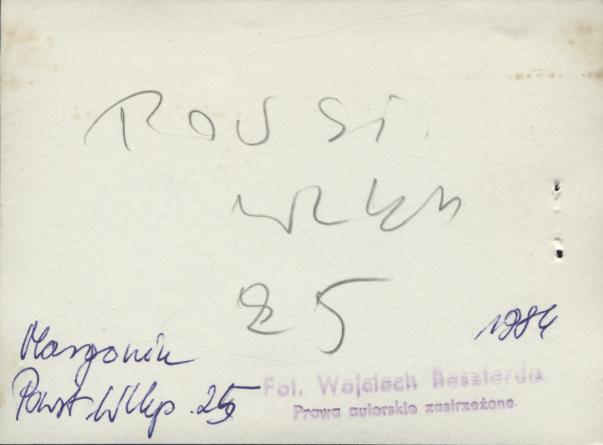 Powst.
Wlkp
25
1984
Margonin
Powst Wlkp. 25
Fot. Wojciech Beszterda
Prawa autorskie zastrzeżone